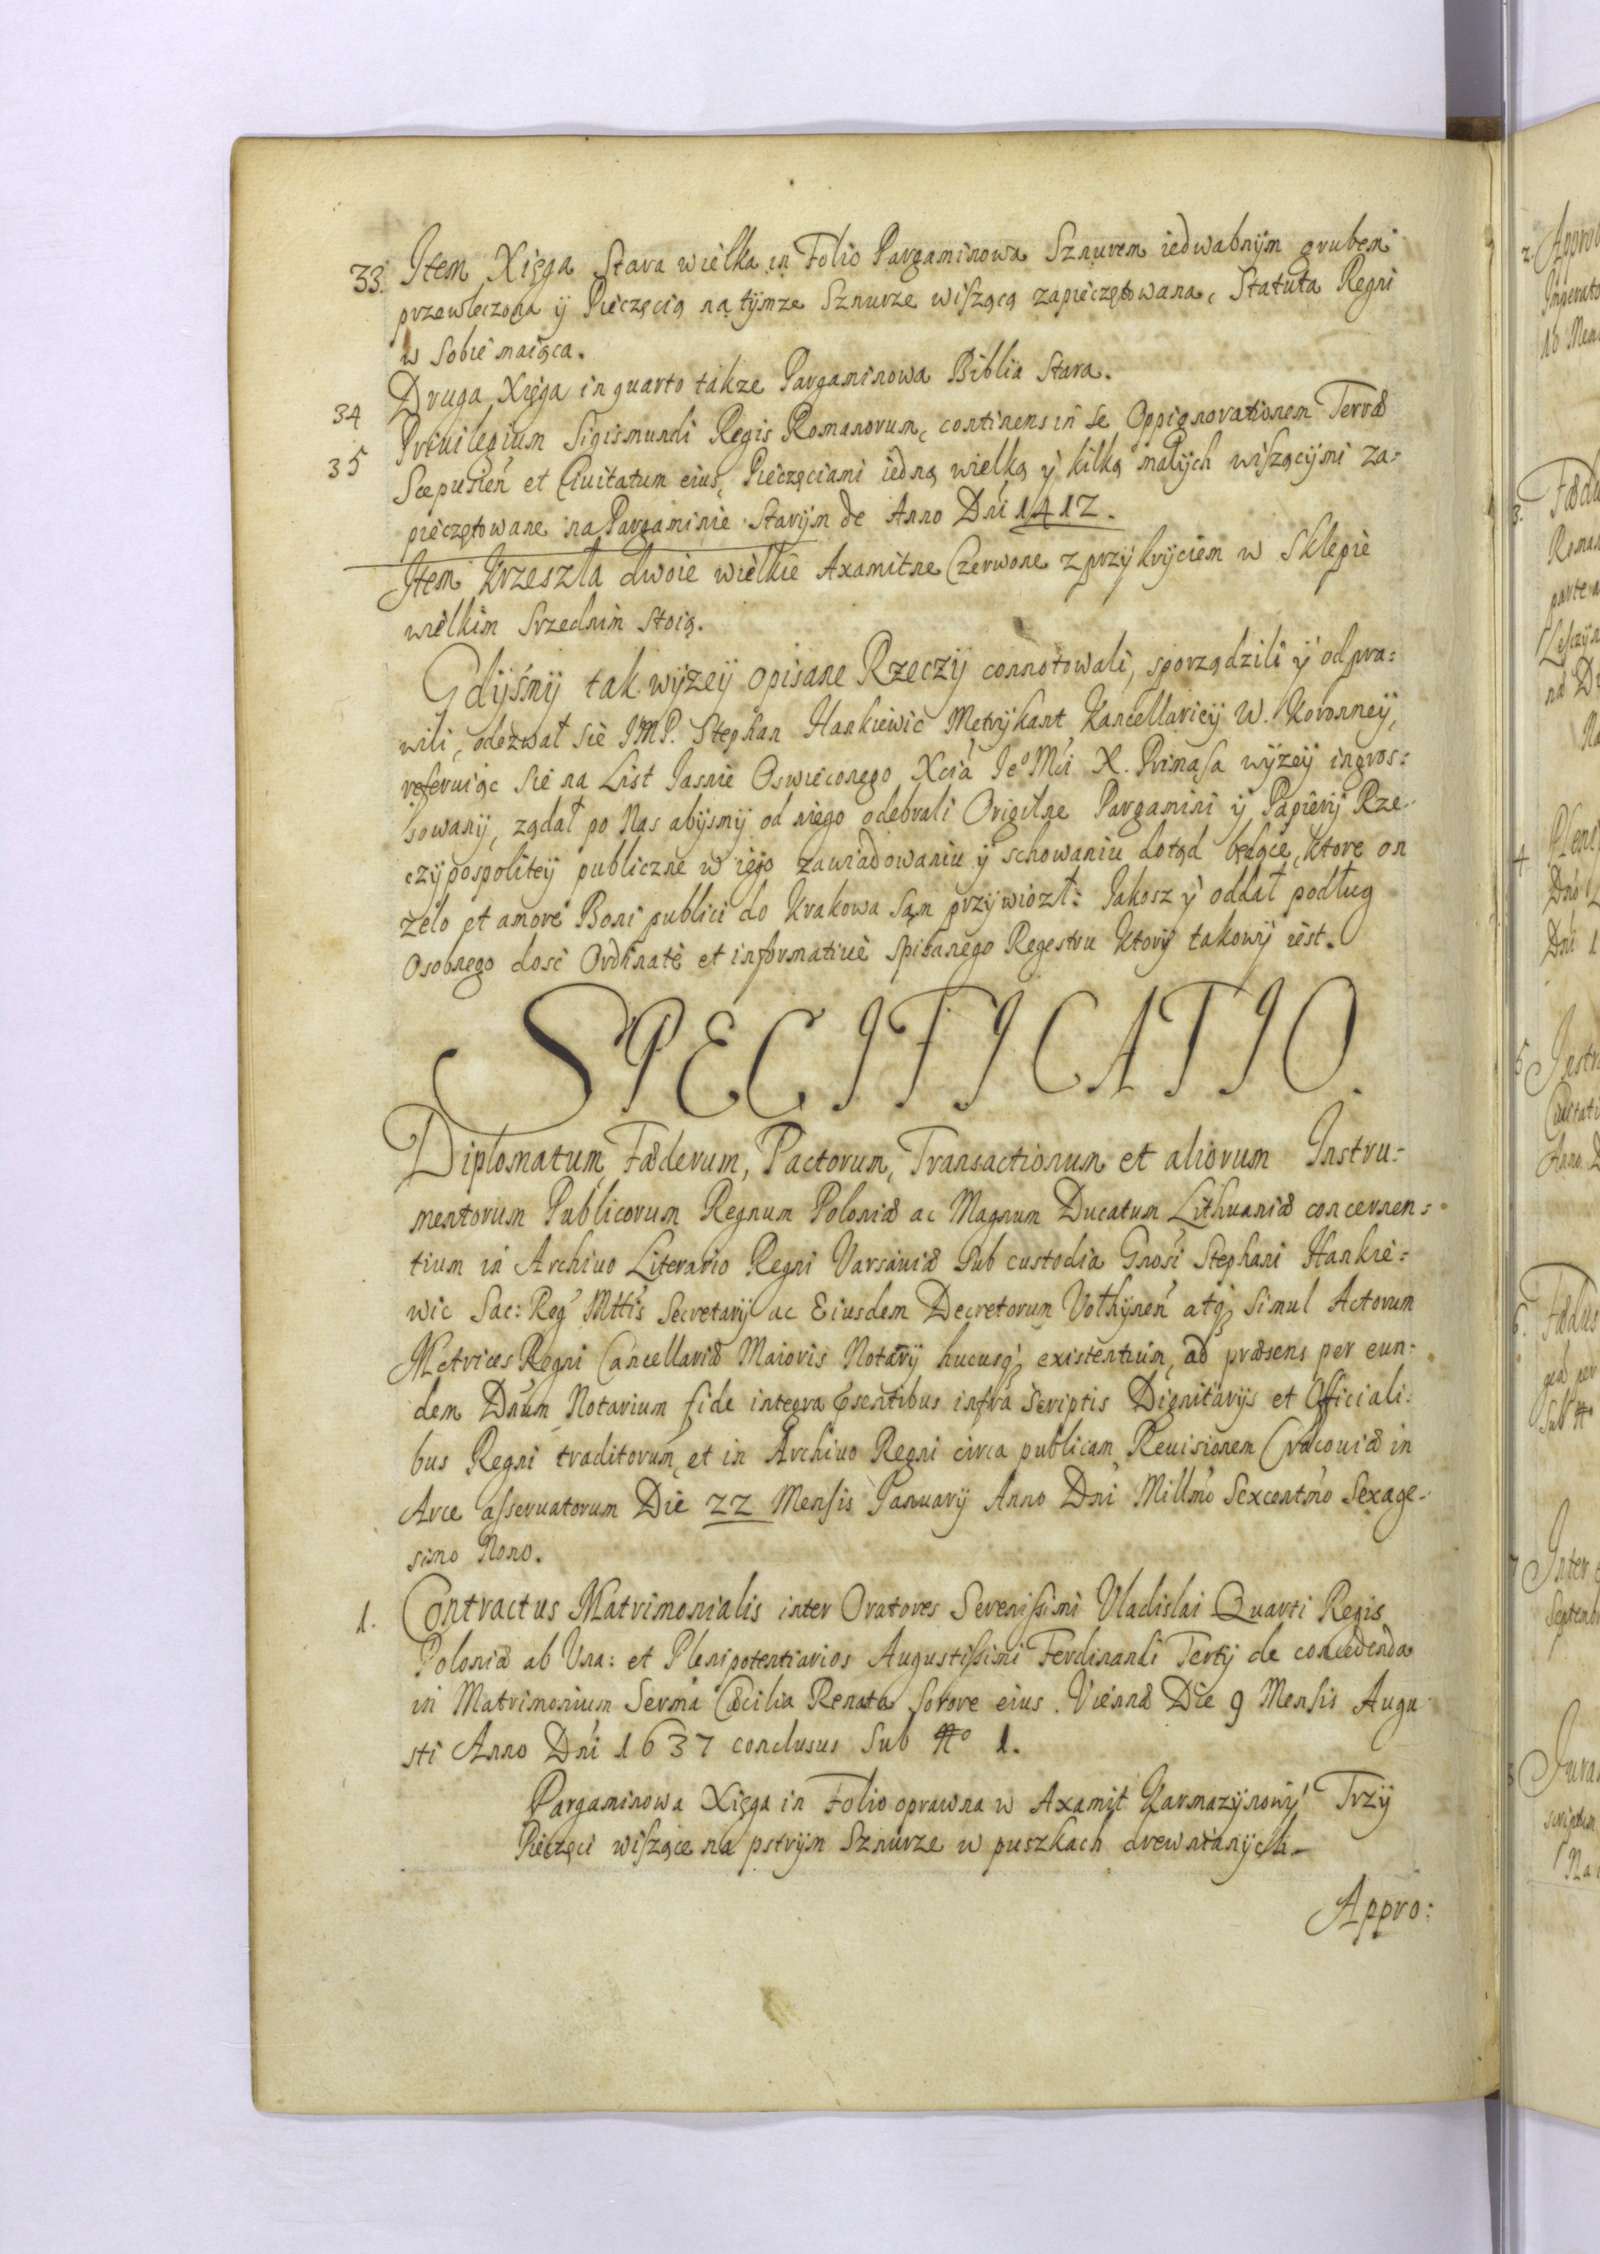 33. Item Xięga Stara wielka in Folio Pargaminowa Sznurem iedwabnÿm grubem
przewleczona ÿ Pieczęcią na tÿmze Sznurze wiszącą zapieczętowana, Statuta Regni
w sobie maiąca.
34 Druga Xięga in quarto takze Pargaminowa Biblia Stara.
35 Priuilegium Sigismundi Regis Romanorum, continens in se Oppignorationem Terræ
Scepusień et Ciuitatum eius, Pieczęciami iedną wielką ÿ kilką małÿch wiszącÿmi za-
pieczętowane na Pargaminie Starÿm de Anno Dńi 1412.
Item Krzeszła dwoie wielkie Axamitne Czerwone z przÿkrÿciem w Sklepie
wielkim Srzednim stoią.
Gdÿsmÿ tak wÿzeÿ opisane Rzeczÿ connotowali, sporządzili ÿ odpra:
wili, odezwał sie IMP. Stephan Hankiewic Metrÿkant Kancellarieÿ W. Koronneÿ,
referuiąc sie na List Iasnie Oswieconego Xcia Ieº Mći X. Primasa wÿzeÿ ingros:
sowanÿ, ządał po Nas abÿsmÿ od niego odebrali Origilne Pargamini ÿ Papierÿ Rze-
czÿpospoliteÿ publiczne w iego zawiadowaniu ÿ schowaniu dotąd będące, ktore on
zelo et amore Boni publici do Krakowa sąm przÿwiózł: Iakosz ÿ oddał podług
Osobnego dosć Ordinatè et informatiuè spisanego Regestru Ktorÿ takowÿ iest.
SPECIFICATIO.
Diplomatum, Fæderum, Pactorum, Transactionum et aliorum Instru:
mentorum Publicorum Regnum Poloniæ ac Magnum Ducatum Lithuaniæ concernen:
tium in Archiuo Literario Regni Varsauiæ sub custodia Gnosi Stephani Hankie:
wic Sac: Reg Mttis Secretarÿ ac Eiusdem Decretorum Volhÿneń atq simul Actorum
Metrices Regni Cancellariæ Maioris Notarÿ hucusq existentium, ad præsens per eun:
dem Dnum Notarium fide integra þsentibus infra scriptis Dignitarijs et Officiali:
bus Regni traditorum, et in Archiuo Regni circa publicam Reuisionem Cracouiæ in
Arce asseruatorum Die 22 Mensis Ianuarÿ Anno Dńi Millmo Sexcentmo Sexage-
simo Nono.
1. Contractus Matrimonialis inter Oratores Serenissimi Vladislai Quarti Regis
Poloniæ ab Vna: et Plenipotentiarios Augustissimi Ferdinandi Tertÿ de concedenda
in Matrimonium Serma Cæcilia Renata sorore eius. Viennæ Die 9 Mensis Augu
sti Anno Dńi 1637 conclusus sub Nº 1.
Pargaminowa Xięga in Folio oprawna w Axamit Karmazÿnowÿ Trzÿ
Pieczęci wiszące na pstrÿm Sznurze w puszkach drewnianÿch.
Appro: